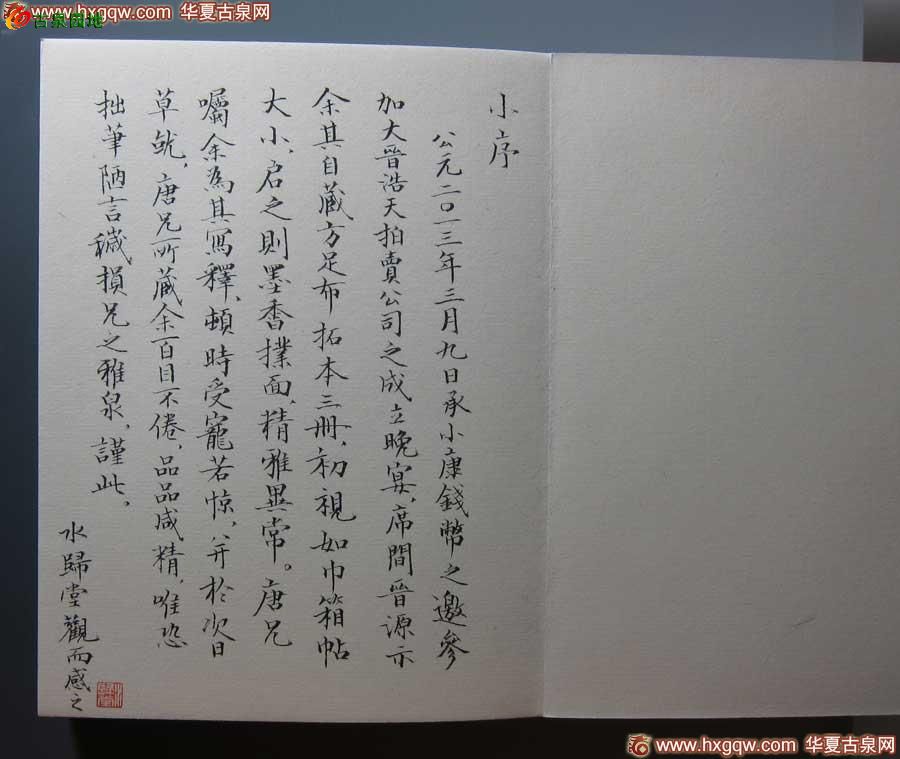 http://www.hxgqw.com 华夏古泉网
古泉园地
小序
公元二〇一三年三月九日承小康錢幣之邀參
加大晉浩天拍賣公司之成立晚宴,席間晉源示
余其自藏方足布拓本三冊,初視如巾箱帖
大小,启之则墨香撲面,精雅異常。唐兄
囑余為其寫釋,頓時受寵若惊,并於次日
草就,唐兄所藏余百目不倦,品品咸精,唯恐
拙筆陋言穢損兄之雅泉,謹此。
水歸堂觀而感之
www.hxgqw.com 华夏古泉网